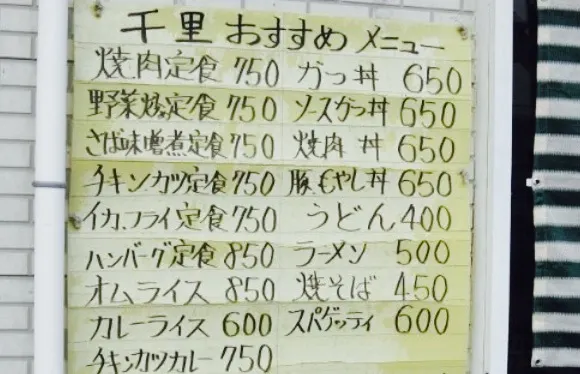 千里 おすすめ メニュー
焼肉定食 750 かつ丼 650
野菜炒定食 750 ソースかつ丼 650
さば味噌煮定食 750 焼肉丼 650
チキンカツ定食 750 豚もやし丼 650
イカ、フライ定食 750 うどん 400
ハンバーグ定食 850 ラーメン 500
オムライス 850 焼そば 450
カレーライス 600 スパゲッティ 600
チキンカツカレー 750